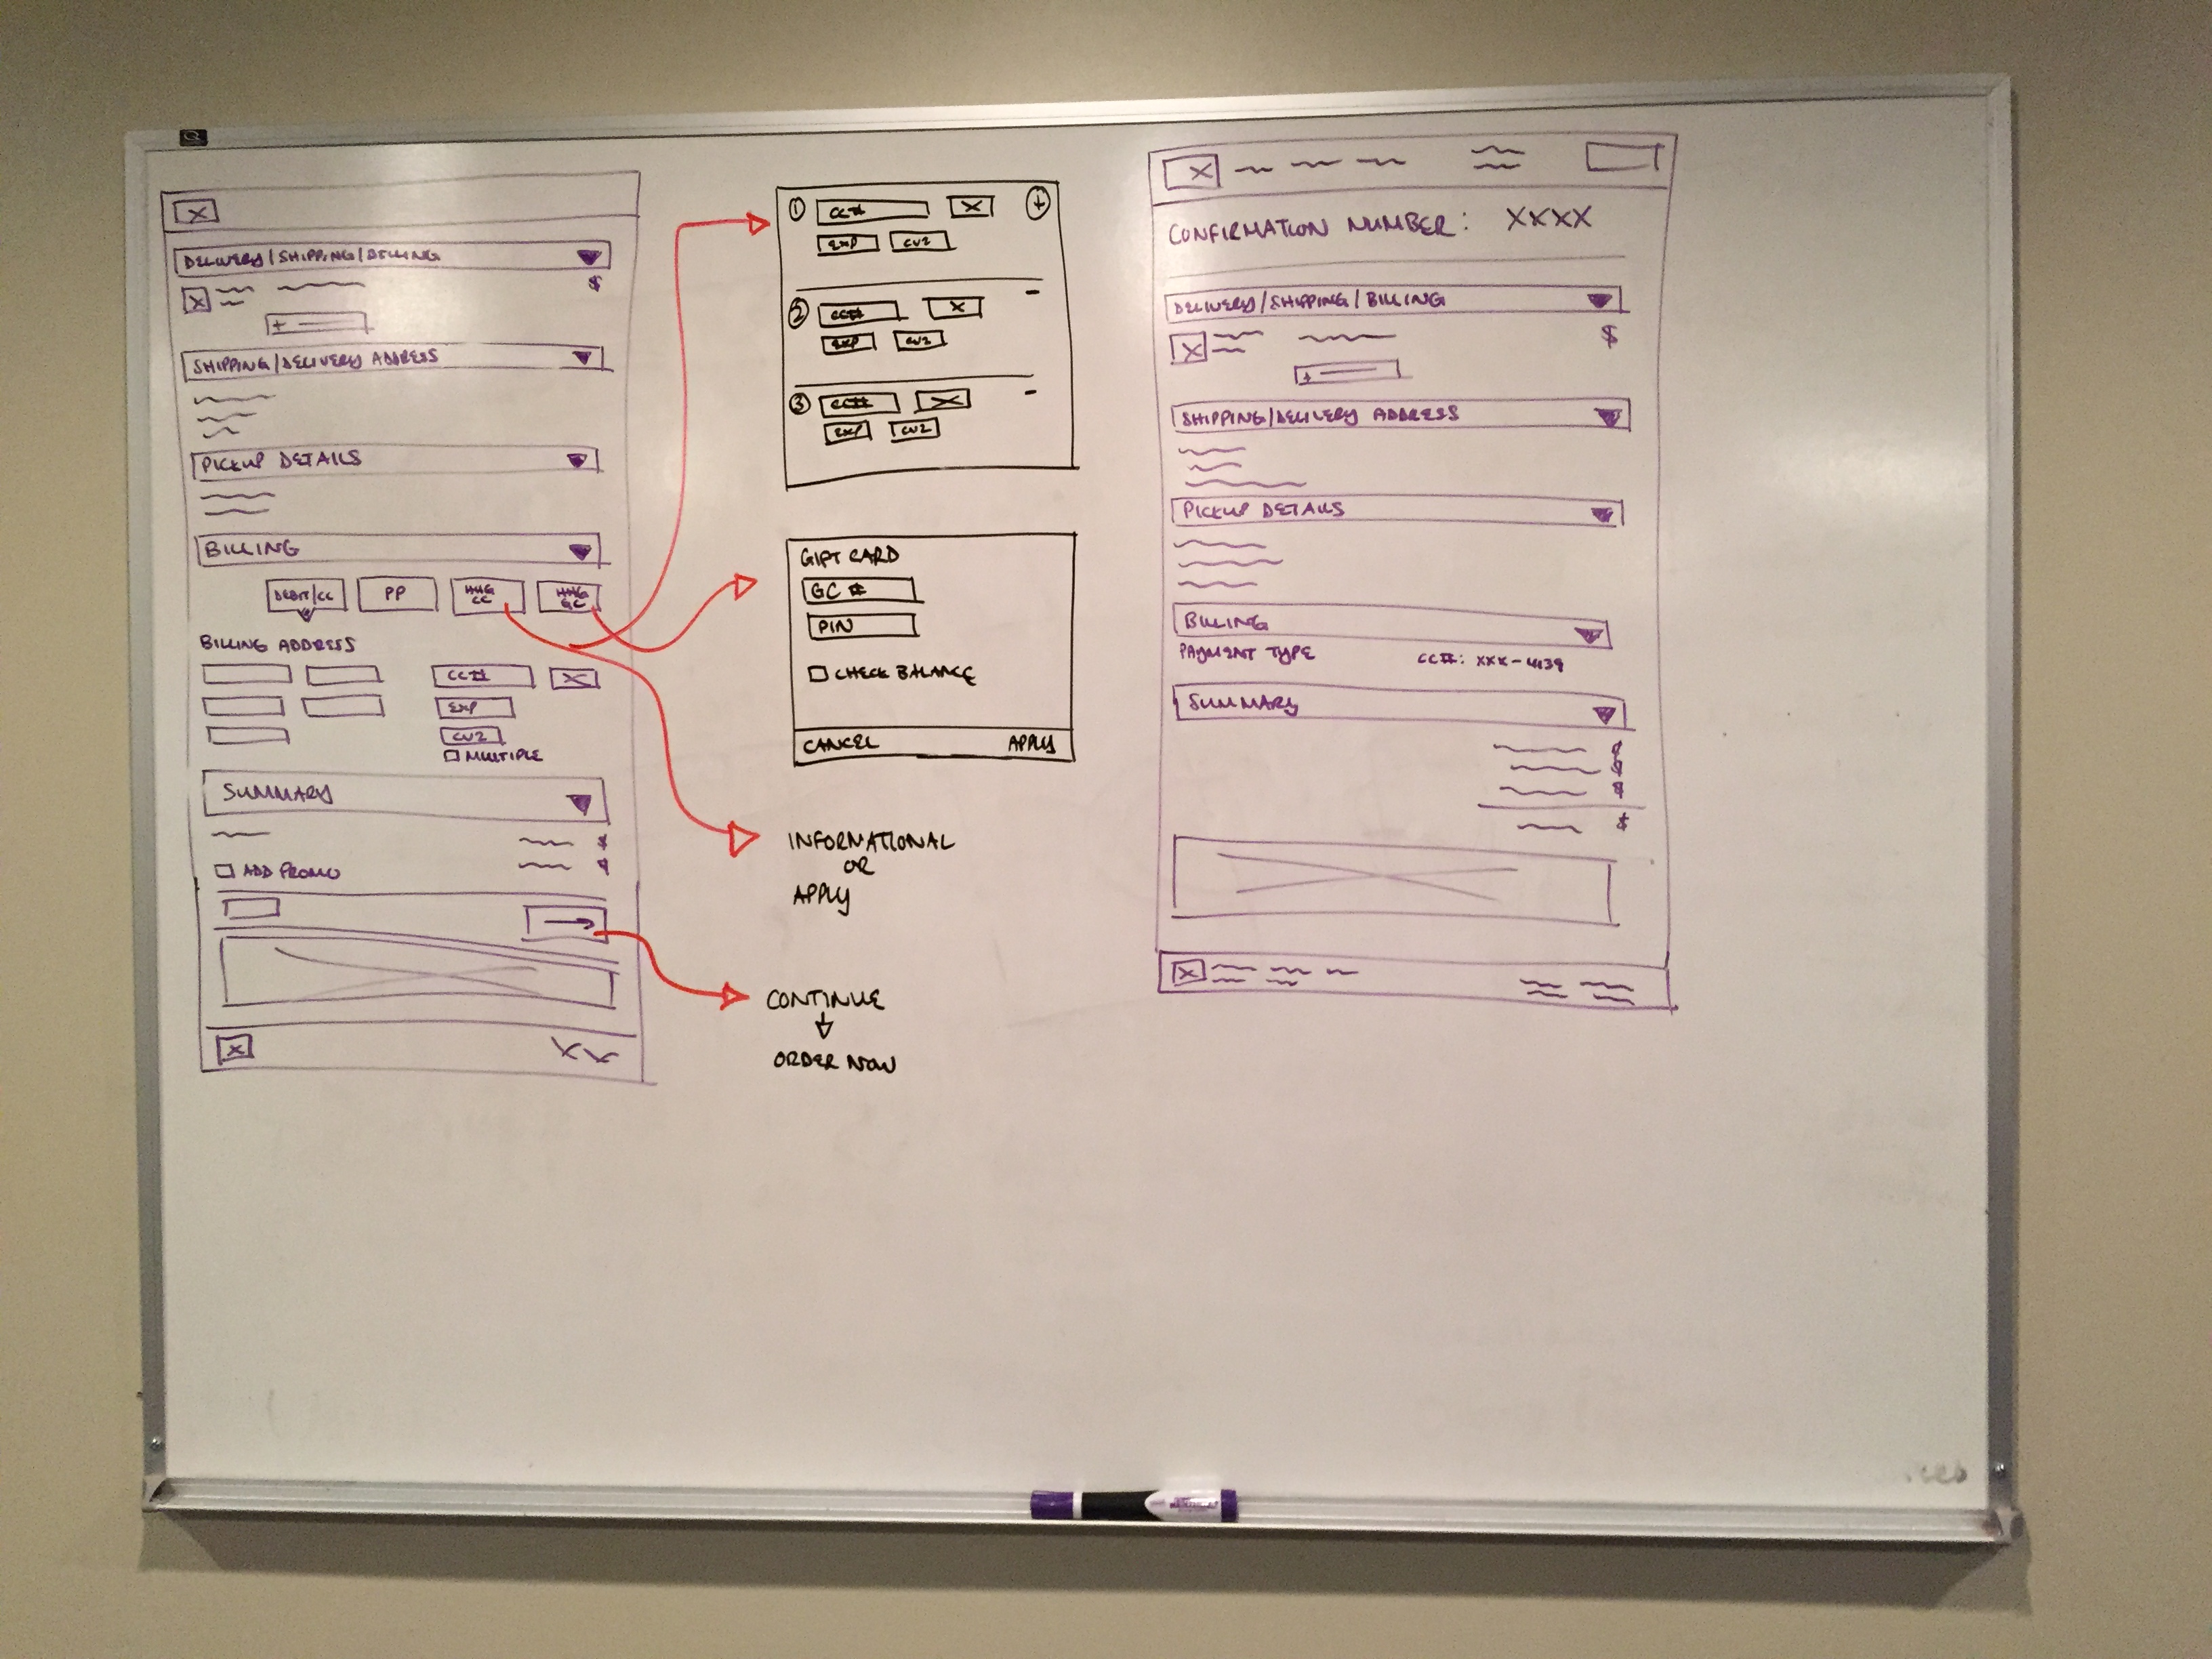 DELIVERY/SHIPPING/BILLING
$
SHIPPING/DELIVERY ADDRESS
PICKUP DETAILS
BILLING
DEBIT/CC
PP
HHG
CC
HHG
GC
BILLING ADDRESS
CC#
EXP
CV2
MULTIPLE
SUMMARY
$
$
ADD PROMO
1 CC# +
EXP CV2
2 CC# -
EXP CV2
3 CC# -
EXP CV2
GIFT CARD
GC #
PIN
CHECK BALANCE
CANCEL APPLY
INFORMATIONAL
OR
APPLY
CONTINUE
ORDER NOW
CONFIRMATION NUMBER: XXXX
DELIVERY/SHIPPING/BILLING
$
SHIPPING/DELIVERY ADDRESS
PICKUP DETAILS
BILLING
PAYMENT TYPE CC#: XXX-4139
SUMMARY
$
$
$
$